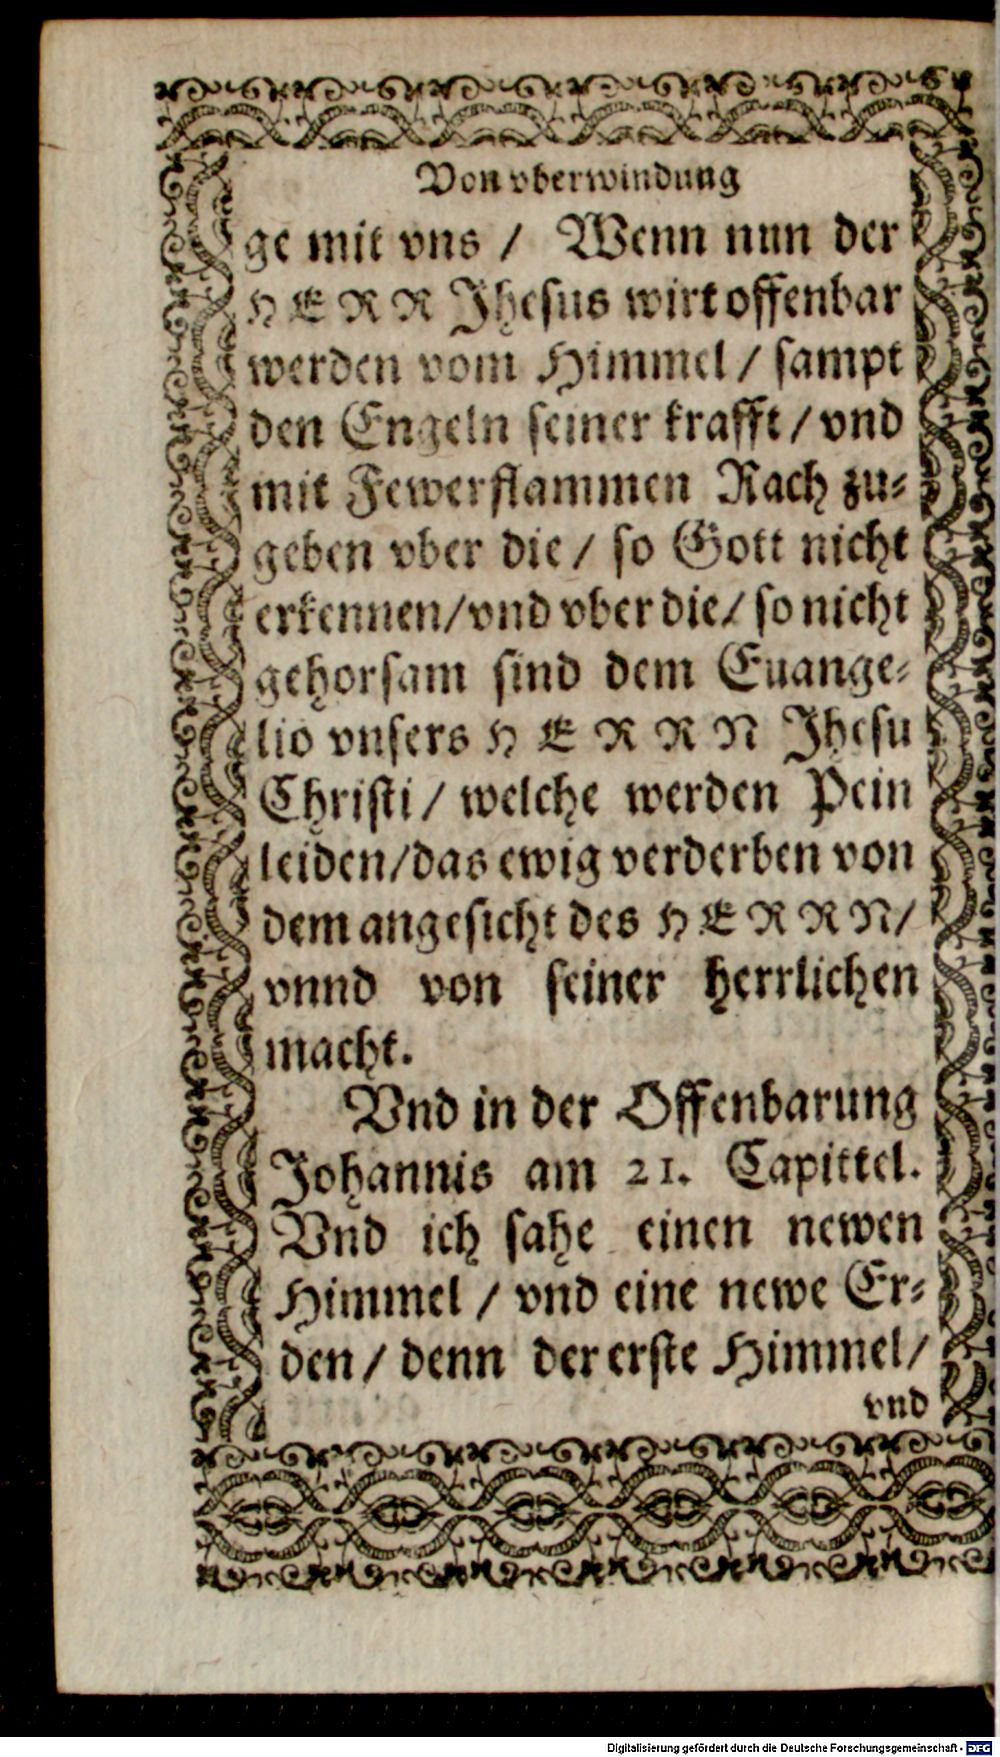 Von vberwindung
ge mit vns / Wenn nun der
HERR Jhesus wirt offenbar
werden vom Himmel / sampt
den Engeln seiner krafft / vnd
mit Fewerflammen Rach zu-
geben vber die / so Gott nicht
erkennen/vnd vber die/ so nicht
gehorsam sind dem Euange-
lio vnsers HERRN Jhesu
Christi / welche werden Pein
leiden/das ewig verderben von
dem angesicht des HERRN/
vnnd von seiner herrlichen
macht.
Vnd in der Offenbarung
Johannis am 21. Capittel.
Vnd ich sahe einen newen
Himmel / vnd eine newe Er-
den / denn der erste Himmel/
vnd
Digitalisierung gefördert durch die Deutsche Forschungsgemeinschaft - DFG